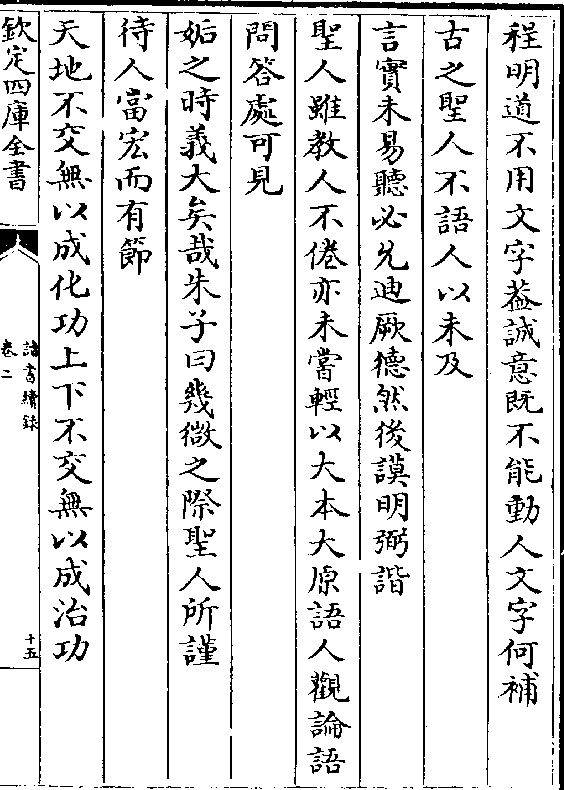 程明道不用文字葢誠意既不能動人文字何補
古之聖人不語人以未及
言實未易聽必允迪厥德然後謨明弼諧
聖人雖教人不倦亦未嘗輕以大本大原語人觀論語
問答處可見
姤之時義大矣哉朱子曰幾微之際聖人所謹
待人當宏而有節
天地不交無以成化功上下不交無以成治功
欽定四庫全書
讀書續録
卷二
十五